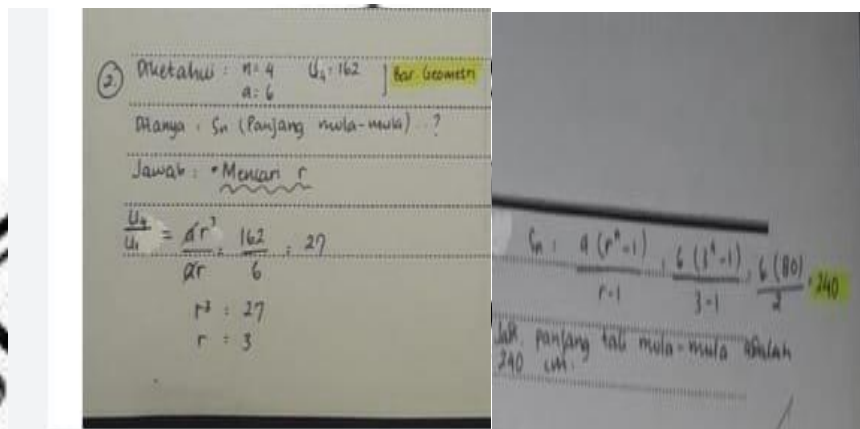 2. Diketahui : n = 4 U₄ = 162 ] Bar. Geometri
a = 6
Ditanya : Sn (Panjang mula-mula) ..?
Jawab : • Mencari r
U₄/U₁ = ar³/ar = 162/6 = 27
r³ = 27
r = 3
Sn = a (rⁿ-1)/r-1 = 6 (3⁴-1)/3-1 = 6 (80)/2 = 240
Jadi panjang tali mula-mula adalah
240 cm.